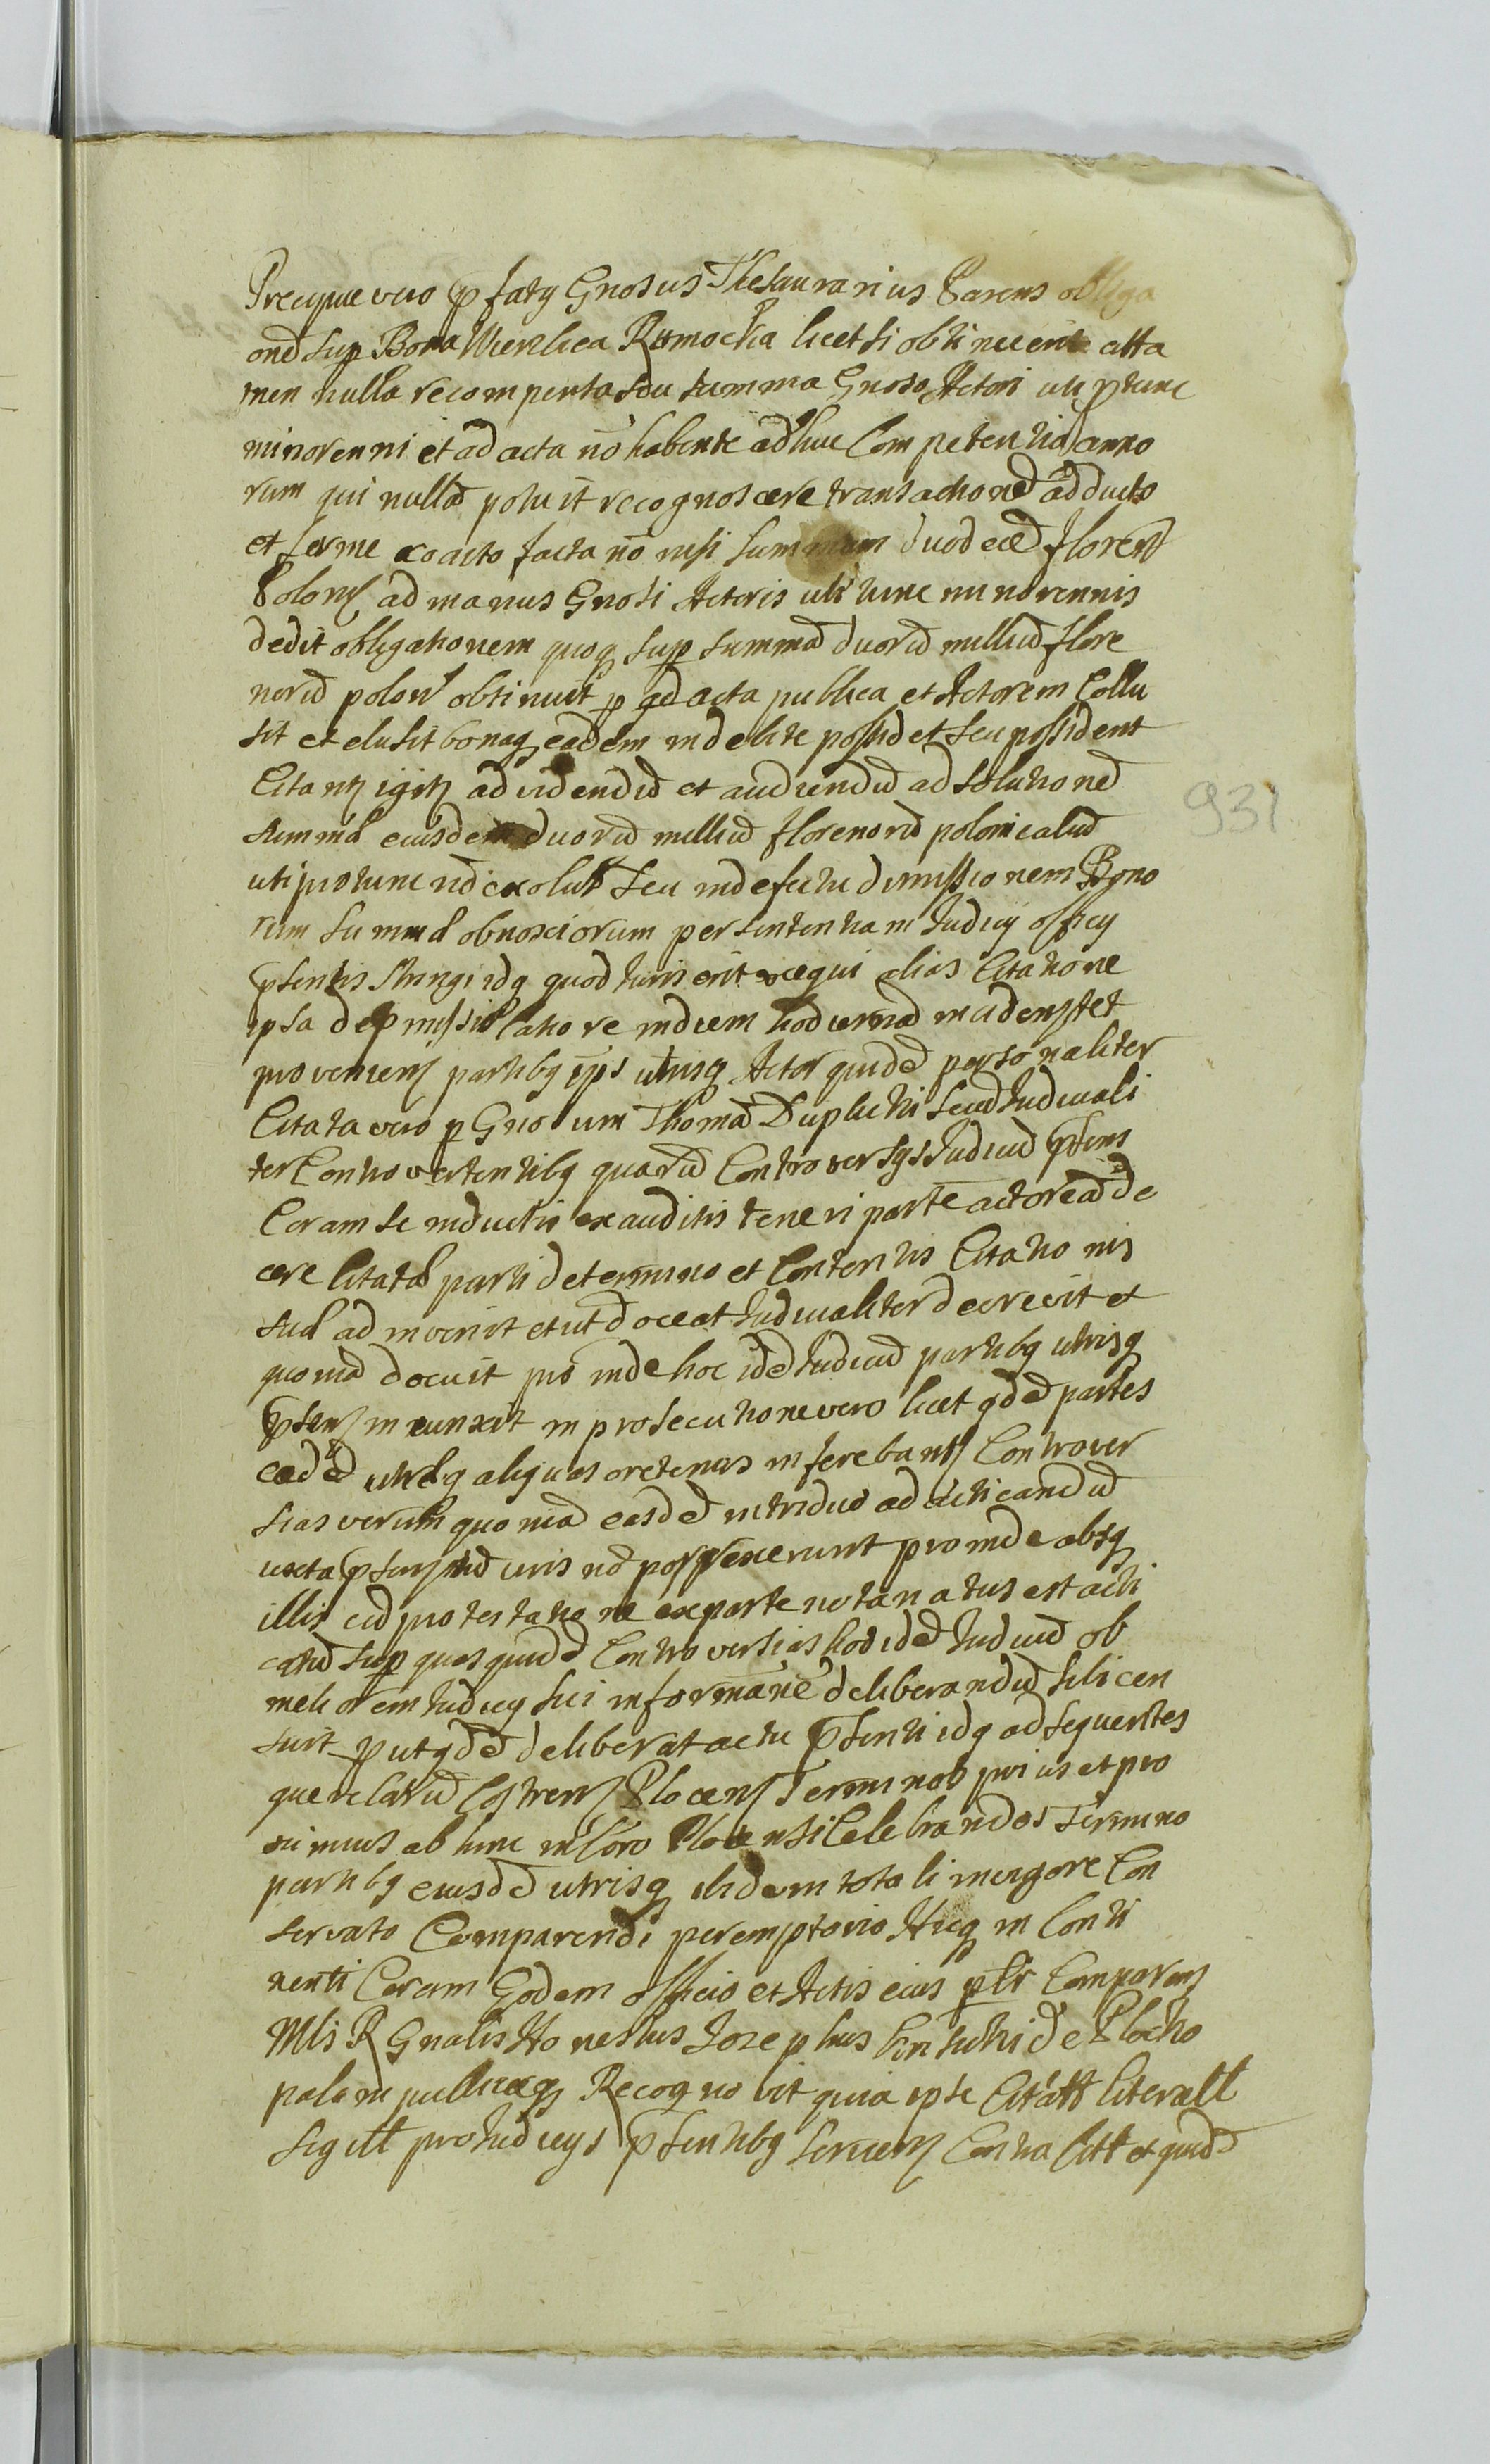 Precipue vero p fatg Gnosus Thesaurarius Parens obliga
oned sup Bona Wierzbica Rumocka licet si obtinuerit atta
men nulla recompensa seu summa Gnoso Actori uti p tunc
minorenni et ad acta nō habente adhuc Competentia anno
rum qui nullā potuit recognoscere transactionē adducto
et ferme coacto facta nō nisi summam duodecē floren
Polon ad manus Gnosi Actoris uti tunc minorennis
dedit obligationem quoq sup summā duorū milliū flore
norū polon obtinuit p qd acta publica et Actorem Collu
sit et elusit bonaq eadem indebite possidet seu possident
Citant igitr ad videndū et audiendū ad solutionē
summæ eiusdem duorū milliū florenorū polonicaliū
uti pro tunc nō exolut seu in defectu dimissionem Bono
rum summæ obnoxiorum per sententiam Iudicij officij
psentis stringi idq quod Iuris erit exequi alias Citatione
ipsa de p missio latiore in diem hodiernā incidens et et
proveniens partibq ips utrisq Actor quidē personaliter
Citata vero p Gnosum Thomā Duplicki secus Iudiciali
ter Controvertentibq quarū Controversijs Iudiciū psens
Coram se inductis exauditis teneri partē actoreā do
cere Citatæ parti de termino et Contentis Citationis
suæ adinvenit et ut doceat Iudicialiter decrevit et
quoniā docuit pro inde hoc idē Iudiciū partibq utrisq
psens iniunxit in prosecutione vero licet qdē partes
eædē utræq aliquas oretenus inferebant Controver
sias verum quoniā easdē in triduo ad acticandū
iuxta psens iuris nō porrexerunt proinde absq
illis cū protestatione ex parte notariatus est acti
catū sup quas quidē Controversias hoc idē Iudiciū ob
meliorem Iudicij sui informanē deliberandū sibi cen
suit put qdē deliberat actu psenti idq ad sequentes
querelarū Castren Plocen Terminos prius et pro
ximius ab hinc in foro Plocensi Celebrandos Termino
partibq eiusdē utrisq ibidem totali in vigore Con
servato Comparendi peremptorio Hicq in Conti
nenti Coram Eodem officio et Actis eius pltr Comparens
Mlis R Gnalis Honestus Josephus de Plocko
palam publiceq Recognovit quia ipse Citatt literatt
sigill pro Iudicijs psentibq serviens Contra Citt et quidē
931